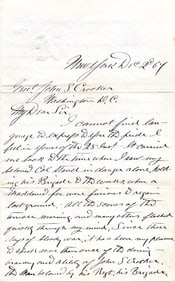 New York Dec 2d 69
Genl John S. Crocker
Washington D.C.
My Dear Sir,
I cannot find lan-
guage to express to you the pride I
feel in yours of the 28 Inst. It carried
me back to the time when I saw my
beloved Col stand in danger alone, hold-
ing his Brigade to the works when a
Maddened for a furious & desper-
last ground - all the scenes of that
morning, and many others flashed
quickly through my mind, Since those
days of bloody war, it has been my pleasure
to speak more than once of the daring -
bravery and ability of John S. Crocker,
the Man beloved by his Regt, his Brigade,